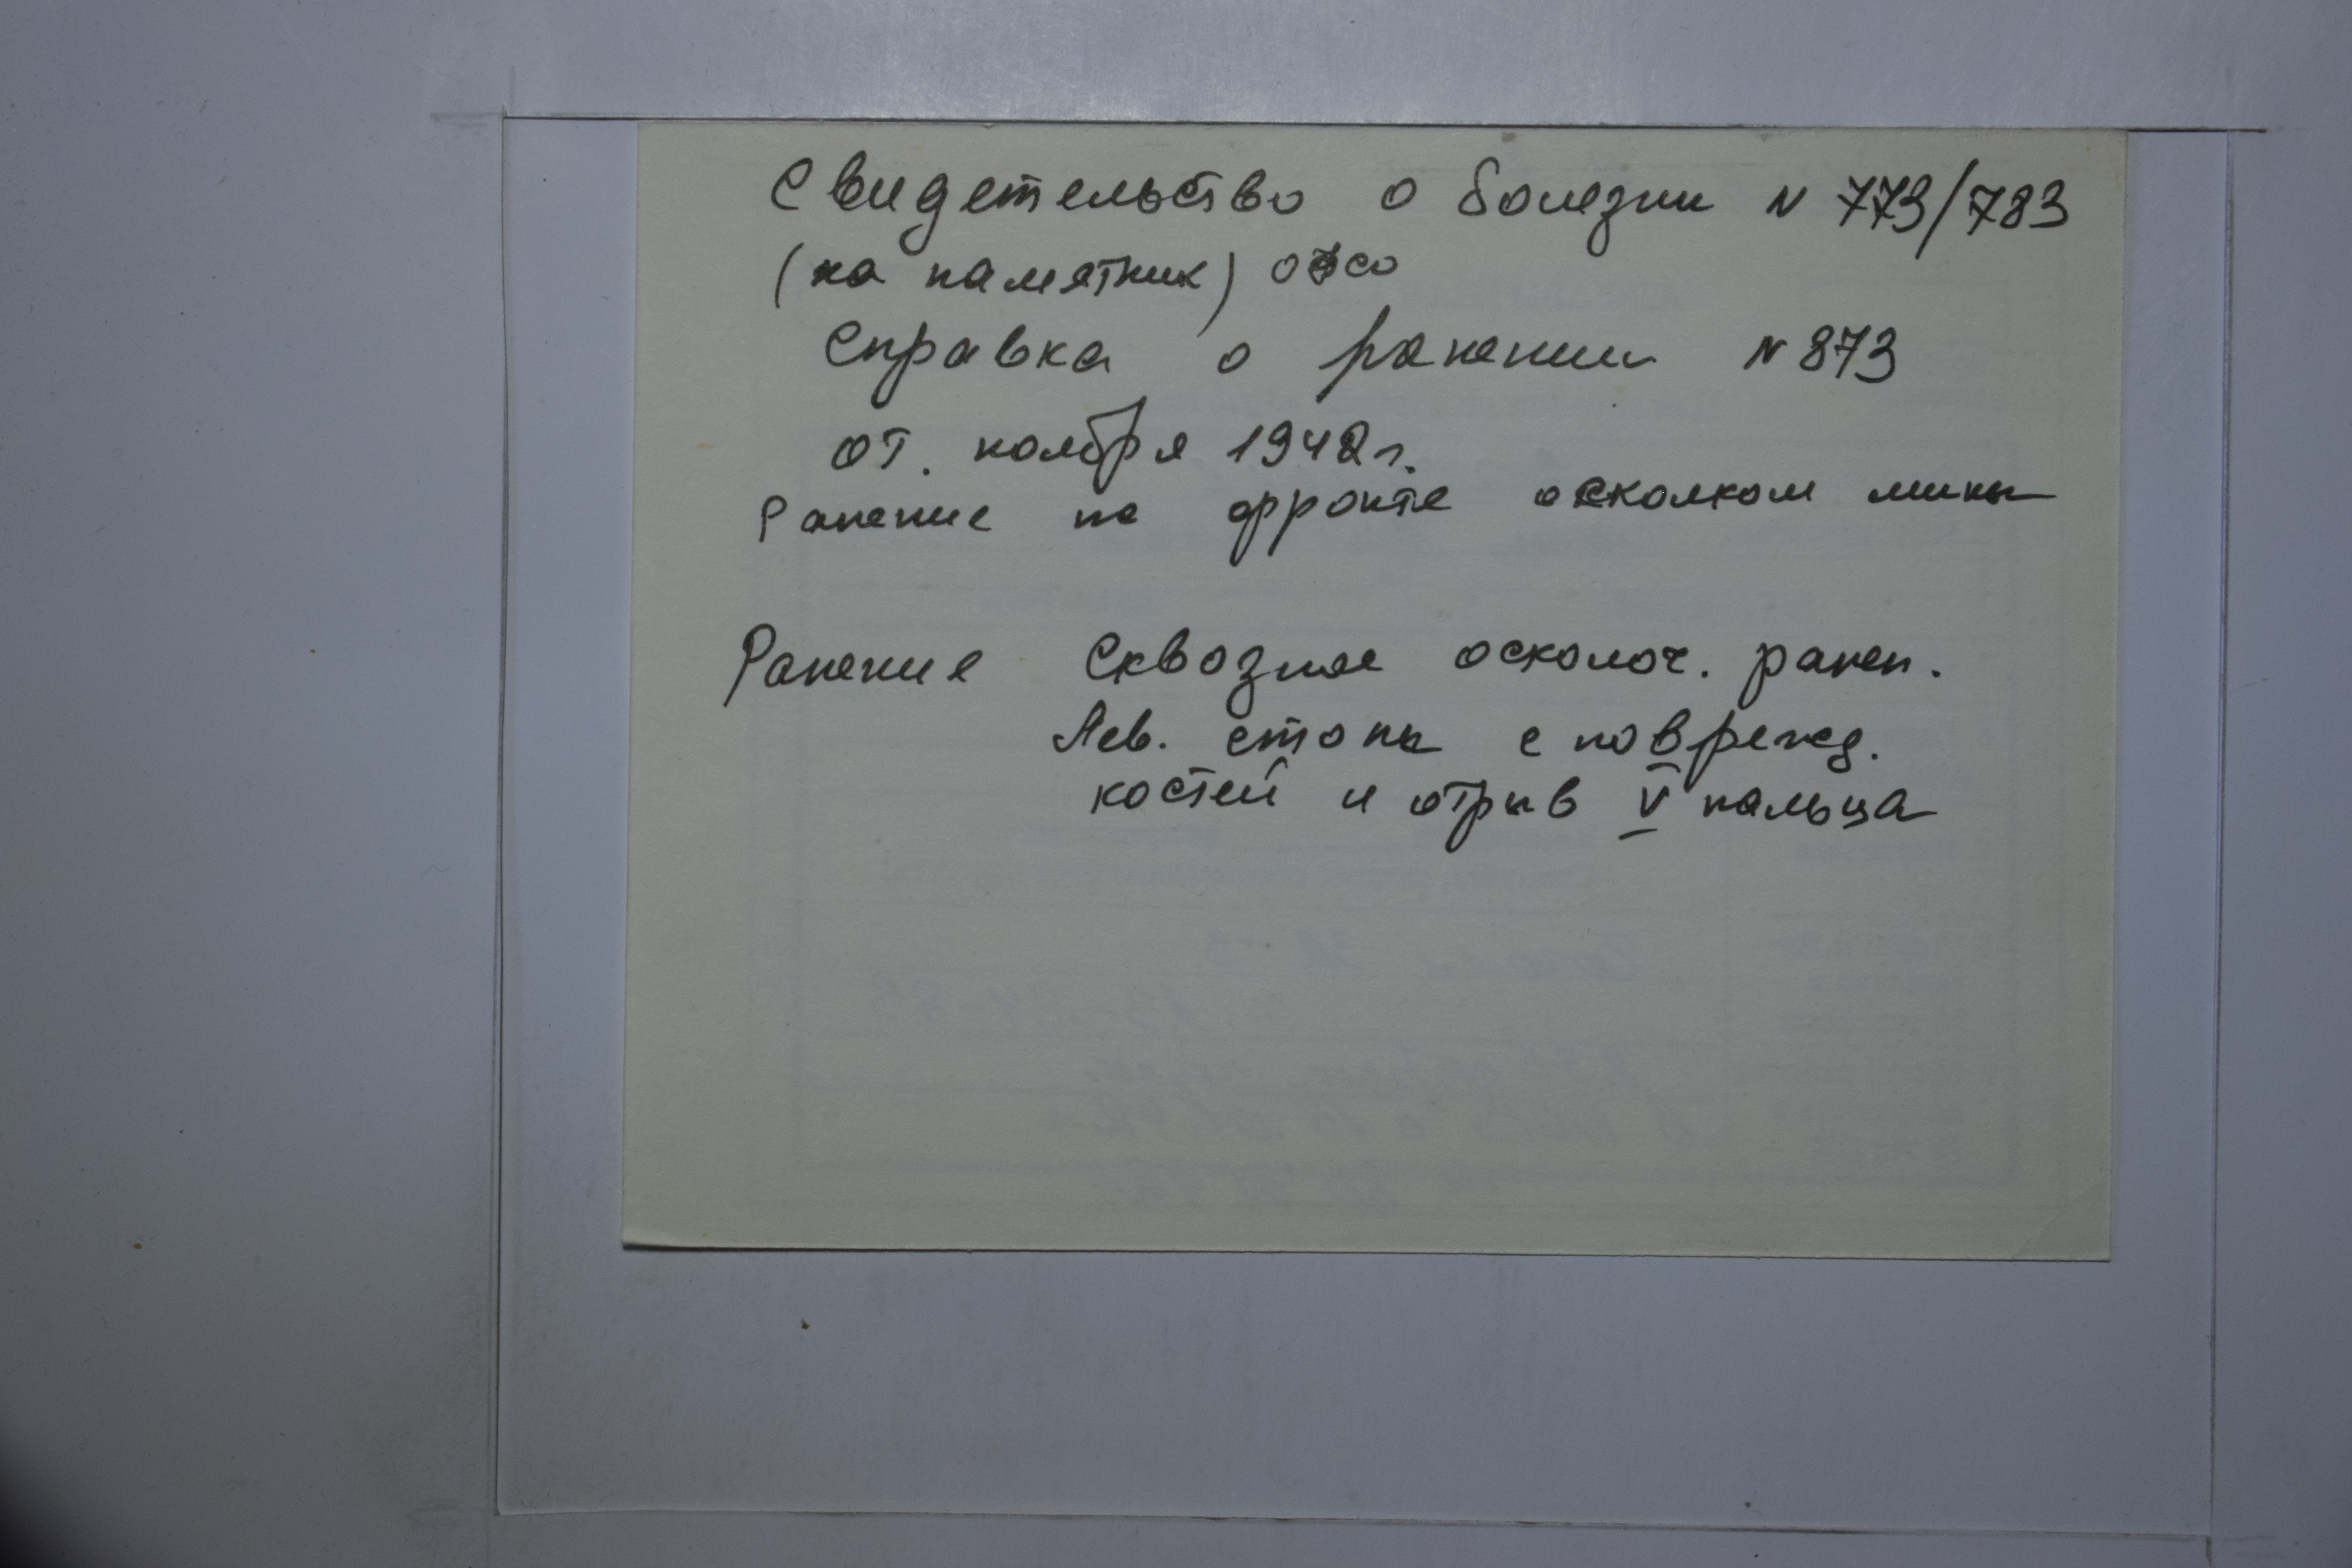 Свидетельство о болезни N 773/783
(на памятник)
Справка о ранении N 873
от. ноября 1942 г.
Ранение на фронте осколком мины
Ранение Сквозное осколоч. ранен.
Лев. стопы с поврежд.
костей и отрыв V пальца